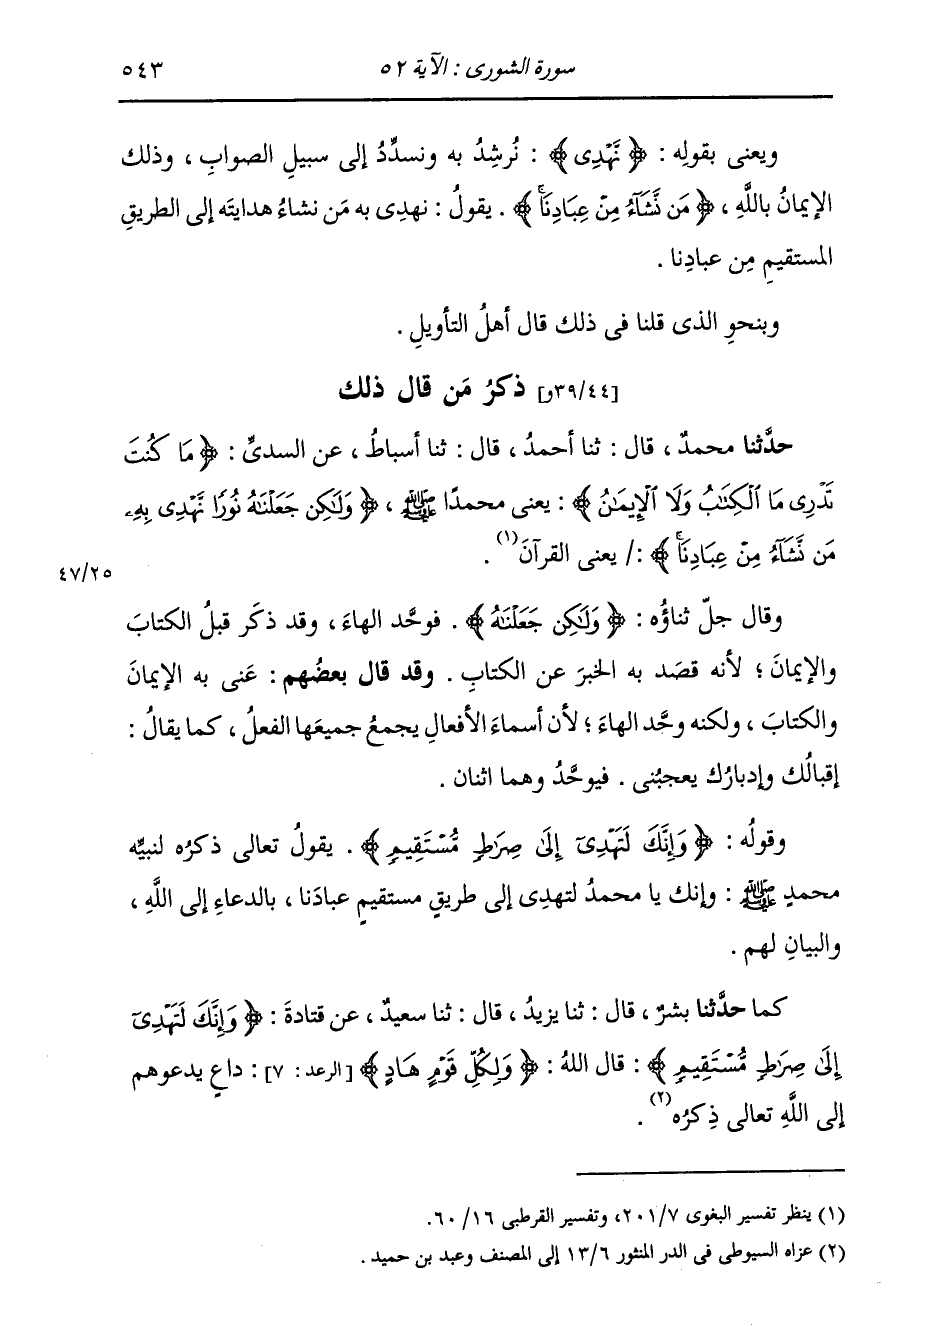 سورة الشورى : الآية ٥٢ ٥٤٣
ويعنى بقولِه : ﴿ نَّهْدِى ﴾ : نُرشِدُ به ونسدِّدُ إلى سبيلِ الصوابِ ، وذلك
الإيمانُ باللَّهِ ، ﴿ مَن نَّشَآءُ مِنْ عِبَادِنَاۚ ﴾ . يقولُ : نهدِى به مَن نشاءُ هدايتَه إلى الطريقِ
المستقيمِ مِن عبادِنا .
وبنحوِ الذى قلنا فى ذلك قال أهلُ التأويلِ .
[٣٩/٤٤و] ذكرُ مَن قال ذلك
حدَّثنا محمدٌ ، قال : ثنا أحمدُ ، قال : ثنا أسباطُ ، عن السدىِّ : ﴿ مَا كُنتَ
تَدْرِى مَا ٱلْكِتَٰبُ وَلَا ٱلْإِيمَٰنُ ﴾ : يعنى محمدًا ﷺ ، ﴿ وَلَٰكِن جَعَلْنَٰهُ نُورًا نَّهْدِى بِهِۦ
مَن نَّشَآءُ مِنْ عِبَادِنَاۚ ﴾ :/ يعنى القرآنَ(١) .
٤٧/٢٥
وقال جلّ ثناؤُه : ﴿ وَلَٰكِن جَعَلْنَٰهُ ﴾ . فوحَّد الهاءَ ، وقد ذكَر قبلُ الكتابَ
والإيمانَ ؛ لأنه قصَد به الخبرَ عن الكتابِ . وقد قال بعضُهم : عَنى به الإيمانَ
والكتابَ ، ولكنه وحَّد الهاءَ ؛ لأن أسماءَ الأفعالِ يجمعُ جميعَها الفعلُ ، كما يقالُ :
إقبالُك وإدبارُك يعجبُنى . فيوحَّدُ وهما اثنان .
وقولُه : ﴿ وَإِنَّكَ لَتَهْدِىٓ إِلَىٰ صِرَٰطٍ مُّسْتَقِيمٍ ﴾ . يقولُ تعالى ذكرُه لنبيِّه
محمدٍ ﷺ : وإنك يا محمدُ لتهدِى إلى طريقٍ مستقيمٍ عبادَنا ، بالدعاءِ إلى اللَّهِ ،
والبيانِ لهم .
كما حدَّثنا بشرٌ ، قال : ثنا يزيدُ ، قال : ثنا سعيدٌ ، عن قتادةَ : ﴿ وَإِنَّكَ لَتَهْدِىٓ
إِلَىٰ صِرَٰطٍ مُّسْتَقِيمٍ ﴾ : قال اللهُ : ﴿ وَلِكُلِّ قَوْمٍ هَادٍ ﴾ [الرعد : ٧] : داعٍ يدعوهم
إلى اللَّهِ تعالى ذِكرُه(٢) .
(١) ينظر تفسير البغوى ٢٠١/٧، وتفسير القرطبى ١٦/ ٦٠.
(٢) عزاه السيوطى فى الدر المنثور ١٣/٦ إلى المصنف وعبد بن حميد .